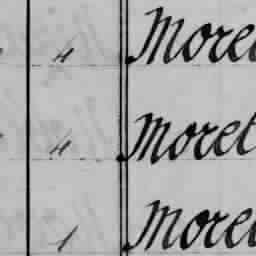 4 Moret
4 Moret
1 Moret